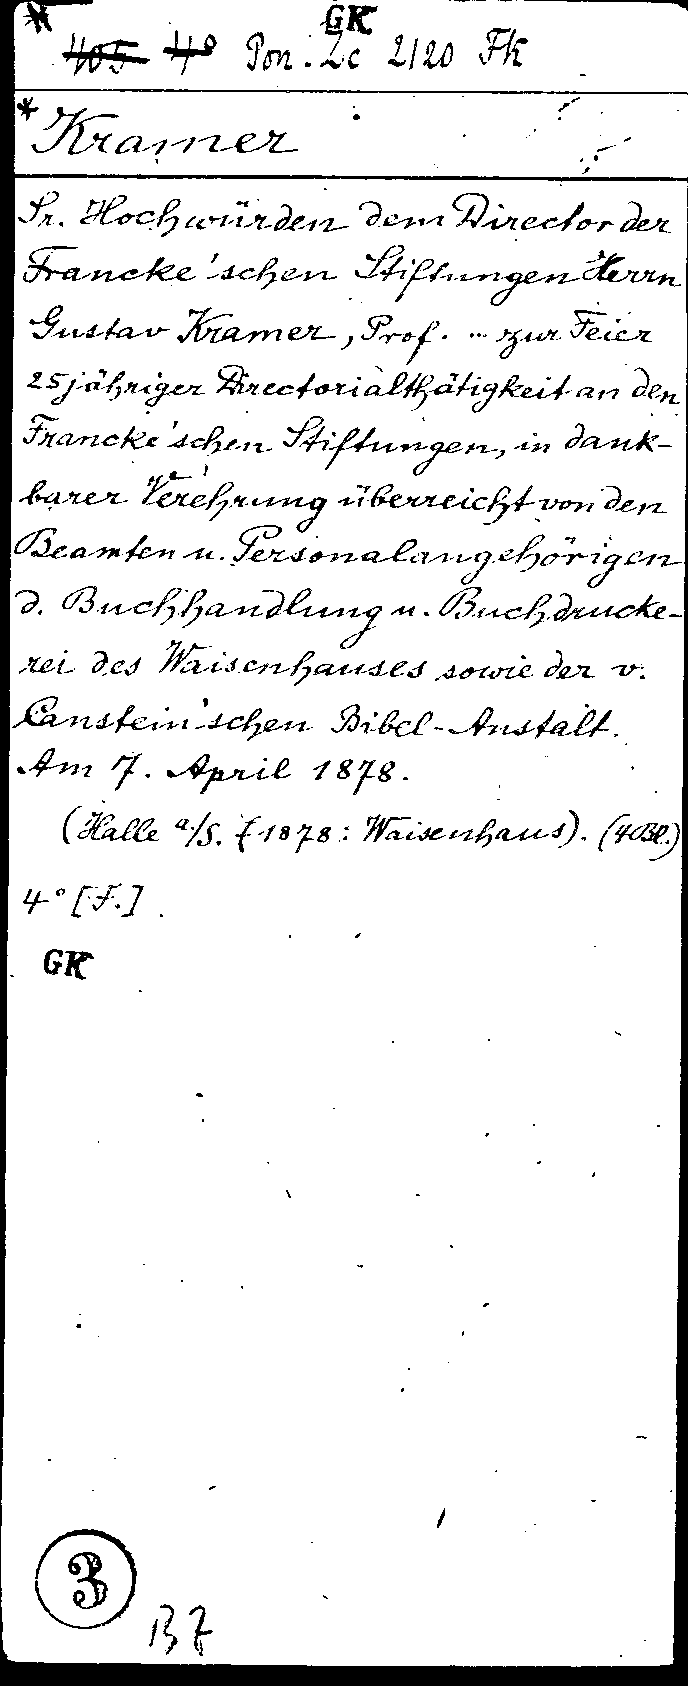 *
GK
405 4° Pon. Zc 2120 FK
*Kramer
Sr. Hochwürden dem Director der
Francke'schen Stiftungen Herrn
Gustav Kramer, Prof. ... zur Feier
25jähriger Directorialthätigkeit an den
Francke'schen Stiftungen, in dank-
barer Verehrung überreicht von den
Beamten u. Personalangehörigen
d. Buchhandlung u. Buchdrucke-
rei des Waisenhauses sowie der v.
Canstein'schen Bibel-Anstalt.
Am 7. April 1878.
(Halle a/S. (1878: Waisenhaus). (4 Bl.)
4° [F.]
GK
3